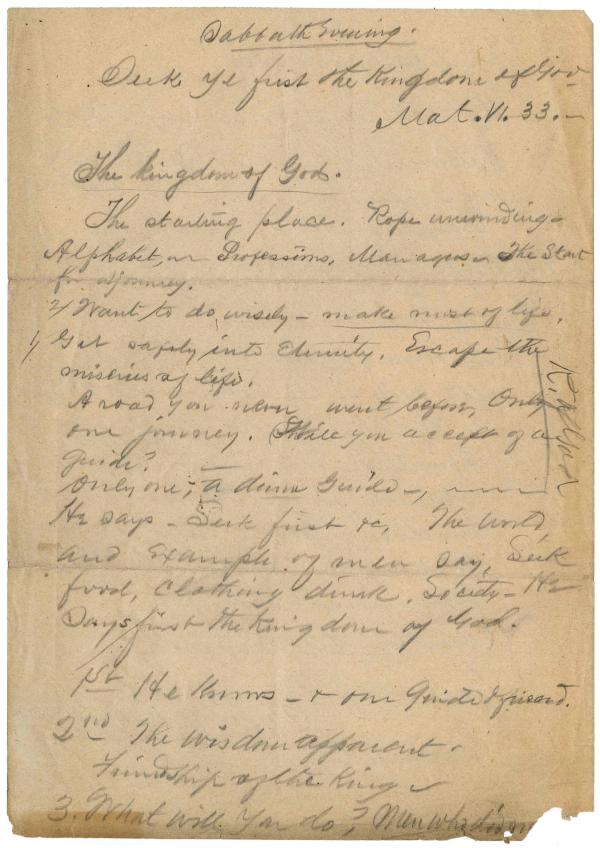 Sabbath Evening.
Seek ye first the Kingdom of God
Mat. VI. 33.-
The kingdom of God.
The starting place. Rope unwinding-
Alphabet, or Professions, Marriages The Start
for a journey.
2/ Want to do wisely - make most of life.
1/ Get safely into Eternity. Escape the
miseries of life.
A road you never went before, Only
one journey. Will you accept of a
guide?
Only one; a divine Guide -,
He says - Seek first &c, The World
and Example of men say, Seek
food, clothing drink, Society - He
Says first the Kingdom of God.
1st He knows - & our Guide & friend.
2nd The wisdom apparent.
Friendship of the King
3. What will You do? Men who
K. of God